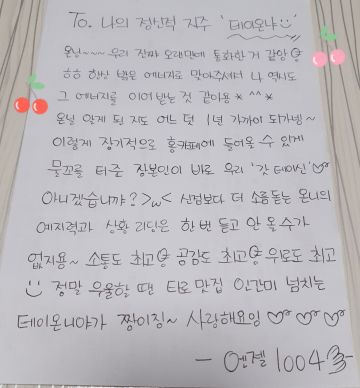 To. 나의 정신적 지주 '테이온냐'
온닝~~~ 우리 진짜 오래만에 통화한 거 같앙
ㅎㅎ 항상 밝은 에너지로 맞아주셔서 나 역시도
그 에너지를 이어받는 것 같아용 * ^^ *
온닝 알게 된 지도 어느 덧 1년 가까이 되가넹~
이렇게 장기적으로 홍카페에 들어올 수 있게
물꼬를 터준 장본인이 바로 우리 '갓 테이신'
아니겠습니까? >ω< 신점보다 더 소름돋는 온니의
예지력과 상황 리딩은 한 번 듣고 안 올 수가
없지용~ 소통도 최고 공감도 최고 위로도 최고
정말 우울할 땐 타로 맛집 인간미 넘치는
테이온니야가 짱이징~ 사랑해요잉 ♡ ♡ ♡
- 엔젤 1004